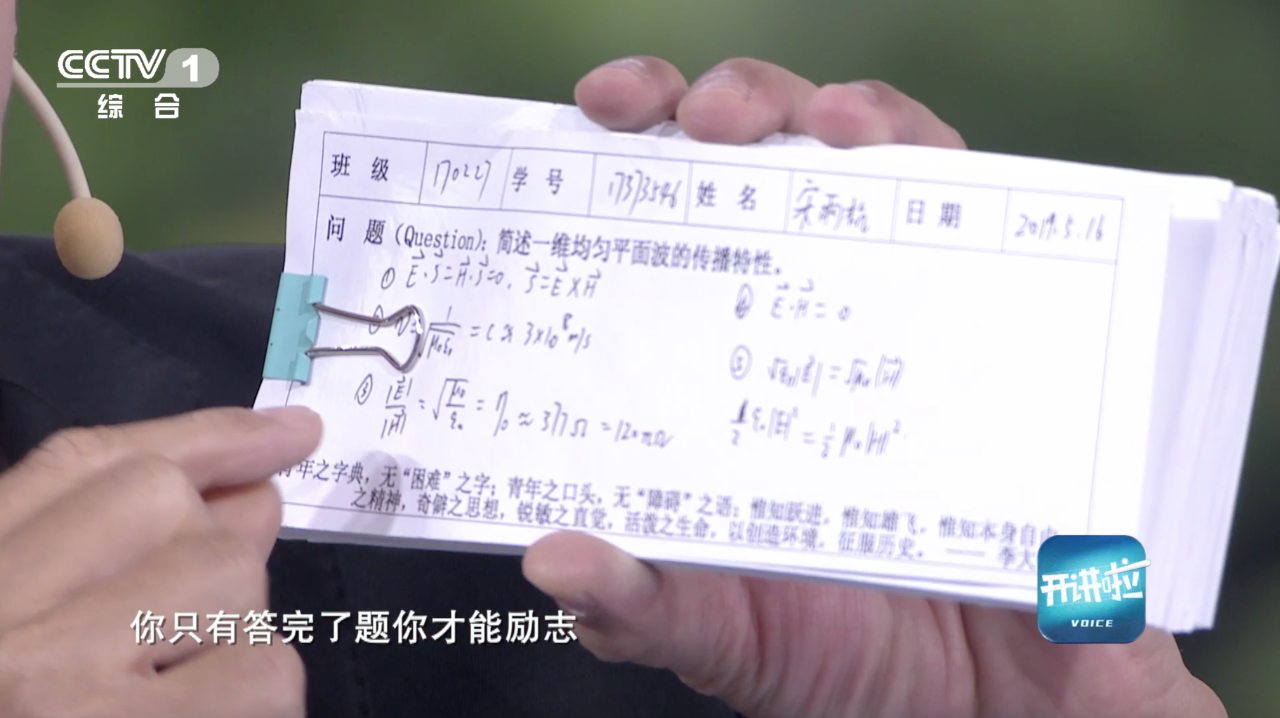 CCTV 1
综合
班级 170227 学号 17373546 姓名 日期 2019.5.16
问题(Question):简述一维均匀平面波的传播特性。
① E⃗·S⃗=H⃗·S⃗=0, S⃗=E⃗×H⃗
④ E⃗·H⃗=0
= c ≈ 3×10⁸m/s
⑤ √ε₀|E⃗|=√μ₀|H⃗|
③ |E⃗|/|H⃗|=√(μ₀/ε₀)=η₀≈377Ω=120πΩ
½ε₀|E|²=½μ₀|H|²
青年之字典,无“困难”之字;青年之口头,无“障碍”之语;惟知跃进,惟知雄飞,惟知本身自由
之精神,奇僻之思想,锐敏之直觉,活泼之生命,以创造环境,征服历史。 —— 李大
开讲啦
VOICE
你只有答完了题你才能励志